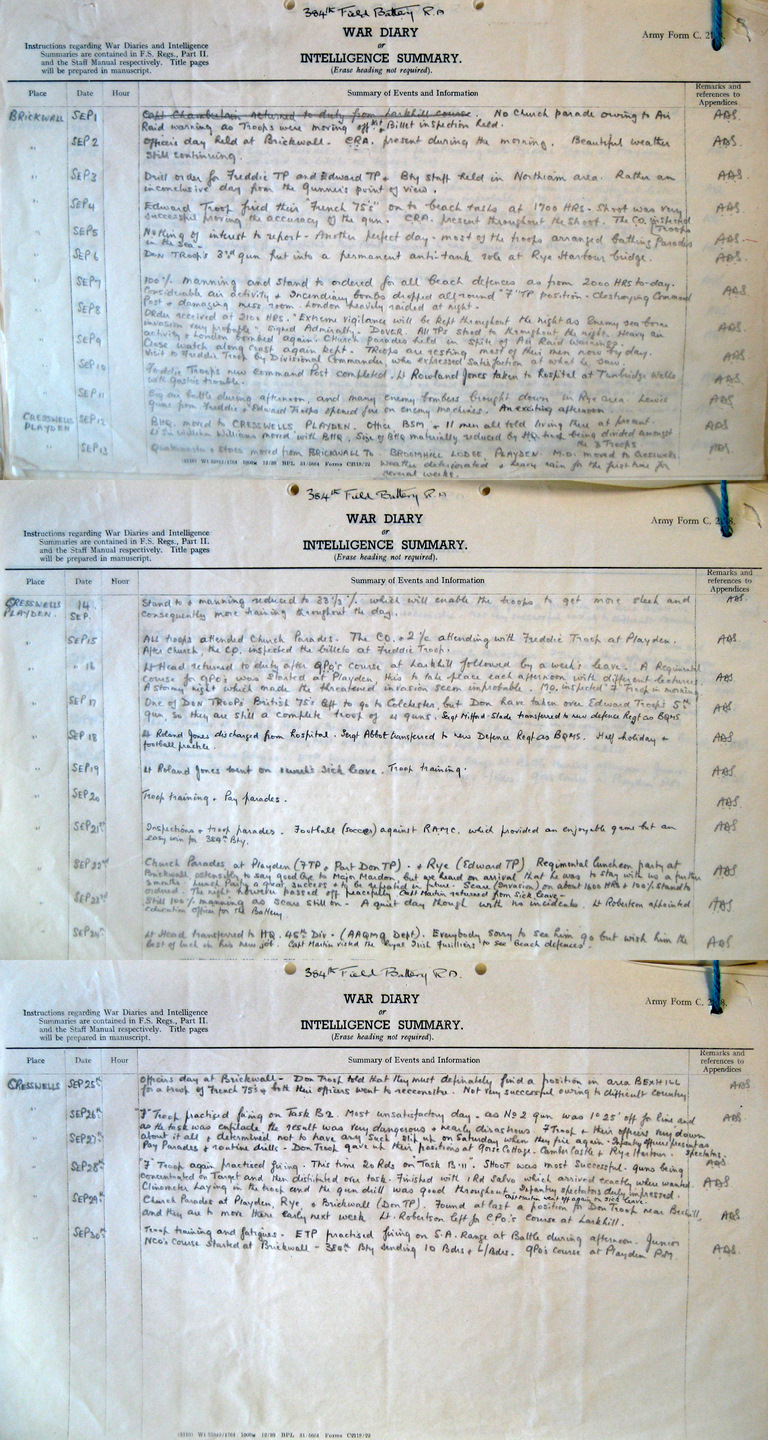 384th Field Battery R.A
WAR DIARY
or
INTELLIGENCE SUMMARY.
(Erase heading not required).
Army Form C. 2118.
Instructions regarding War Diaries and Intelligence
Summaries are contained in F.S. Regs., Part II.
and the Staff Manual respectively. Title pages
will be prepared in manuscript.
Place Date Hour Summary of Events and Information Remarks and references to Appendices
BRICKWALL SEP 1 Capt Chamberlain returned to duty from Larkhill course. No Church parade owing to Air
Raid warning as Troops were moving off. Billet inspection held. ABS.
" SEP 2 Officers day held at Brickwall. CRA. present during the morning. Beautiful weather
still continuing. ABS.
" SEP 3 Drill order for Freddie TP and Edward TP + Bty staff held in Northiam area. Rather an
inconclusive day from the Gunner's point of view. ABS.
" SEP 4 Edward Troop fired their "French 75's" on to beach tasks at 1700 HRS - Shoot was very
successful proving the accuracy of the gun. CRA. present throughout the shoot. The CO. inspected
Troops ABS.
" SEP 5 Nothing of interest to report - Another perfect day - most of the troops arranged Bathing Parades
in the Sea - ABS.
" SEP 6 DON TROOP'S 3rd gun put into a permanent anti-tank role at Rye Harbour bridge. ABS.
" SEP 7 100% Manning and Stand to ordered for all beach defences as from 2000 HRS to-day.
Considerable air activity + Incendiary bombs dropped all round "F" TP position - Command
Post + damaging mess room. London heavily raided at night. ABS.
" SEP 8 Order received at 2100 HRS. "Extreme vigilance will be kept throughout the night as Enemy sea borne
invasion very probable", signed Admiralty - DOVER. All TPs stood to throughout the night. Heavy air
activity + London bombed again. Church parades held in spite of Air Raid Warnings. ABS.
" SEP 9 Close watch along coast again kept - TRoops are resting most of their men now by day.
Visit to Freddie Troop by Divisional Commander, who expressed satisfaction at what he saw. ABS.
" SEP 10 Freddie Troops new Command Post completed. Lt Rowland Jones taken to Hospital at Tunbridge Wells
with Gastric trouble. ABS.
" SEP 11 Big air Battle during afternoon, and many enemy bombers brought down in Rye area. Lewis
guns from Freddie + Edward Troops opened fire on enemy machines. An exciting afternoon. ABS.
CRESSWELLS
PLAYDEN SEP 12 BHQ. moved to CRESSWELLS PLAYDEN. BSM + 11 men all told living there at present.
Williams moved with BHQ. Size of BHQ materially reduced by HQ. being divided amongst
the 3 Troops. ABS.
SEP 13 + stores moved from BRICKWALL To BROOMHILL LODGE, PLAYDEN. M.O. moved to Cresswells
Weather deteriorated + heavy rain for the first time for
several weeks. ABS.
384th Field Battery R.A
WAR DIARY
or
INTELLIGENCE SUMMARY.
(Erase heading not required).
Army Form C. 2118.
Instructions regarding War Diaries and Intelligence
Summaries are contained in F.S. Regs., Part II.
and the Staff Manual respectively. Title pages
will be prepared in manuscript.
Place Date Hour Summary of Events and Information Remarks and references to Appendices
CRESSWELLS
PLAYDEN. 14 SEP. Stand to + manning reduced to 33⅓%. which will enable the troops to get more sleep and
consequently more training throughout the day. ABS.
" SEP 15 All troops attended Church Parades. The CO. + 2 i/c attending with Freddie Troop at Playden.
After Church, the CO. inspected the billets at Freddie Troop. ABS.
" " 16 Lt Head returned to duty after GPO's course at Larkhill followed by a week's leave. A Regimental
Course for GPO's was started at Playden, this to take place each afternoon with different lecturers.
A stormy night which made the threatened invasion seem improbable. MO. inspected "F" Troop in morning ABS.
" SEP 17 One of DON TROOPS British 75's left to go to Colchester, but Don have taken over Edward Troop's 5th
gun, so they are still a complete troop of 4 guns. Sergt -Slade transferred to new defence Regt as BQMS. ABS.
" SEP 18 Lt Roland Jones discharged from Hospital. Sergt Abbot transferred to new Defence Regt as BQMS. Half holiday +
football practice. ABS.
" SEP 19 Lt Roland Jones went on 1 week's Sick leave. Troop training. ABS.
" SEP 20 Troop training + Pay parades. ABS.
" SEP 21st Inspections + troop parades. Football (soccer) against R.A.M.C. which provided an enjoyable game but an
easy win for 384th Bty. ABS.
" SEP 22nd Church Parades at Playden (F TP + Part Don TP) - + Rye (Edward TP) Regimental Luncheon party at
Brickwall ostensibly to say good bye to Major Mardon but we heard on arrival that he was to stay with us a further
3 months. Lunch Party a great success + to be repeated in future. Scare (Invasion) on about 1600 HRS + 100% Stand to
ordered. The night however passed off peacefully. Capt Martin returned from Sick leave - ABS.
" SEP 23rd Still 100% manning as scare still on - A quiet day though with no incidents. Lt Robertson appointed
education officer for the Battery. ABS.
" SEP 24th Lt Head transferred to HQ. 45th Div - (AAQMG Dept). Everybody sorry to see him go but wish him the
best of luck in his new job. Capt Martin visited the Royal Irish Fusiliers to see Beach defences. ABS.
384th Field Battery R.A.
WAR DIARY
or
INTELLIGENCE SUMMARY.
(Erase heading not required).
Army Form C. 2118.
Instructions regarding War Diaries and Intelligence
Summaries are contained in F.S. Regs., Part II.
and the Staff Manual respectively. Title pages
will be prepared in manuscript.
Place Date Hour Summary of Events and Information Remarks and references to Appendices
CRESSWELLS SEP 25th Officers day at Brickwall - Don Troop told that they must definately find a position in area BEXHILL
for a troop of French 75's + both their officers went to reconnoitre. Not very successful owing to difficult country. ABS
" SEP 26th "F" Troop practised firing on Task B2. Most unsatisfactory day - as No 2 gun was 1° 25' off for line and
as the task was enfilade the result was very dangerous + nearly disastrous. F Troop + their officers very down
about it all + determined not to have any such slip up on Saturday when they fire again - Infantry officers present as
spectators. ABS
" SEP 27th Pay Parades + routine drills - Don Troop gave up their positions at Gorse Cottage. Camber Castle + Rye Harbour. ABS
" SEP 28th "F" Troop again practised firing. This time 20 Rds on "Task B11". SHOOT was most Successful. guns being
concentrated on Target and then distributed over task. Finished with 1 Rd Salvo which arrived exactly when wanted.
Clinometer Laying in the troop and the gun drill was good throughout. Infantry spectators duly impressed. ABS.
Capt Martin went off again on sick leave
" SEP 29th Church Parades at Playden, Rye, + Brickwall (Don TP). Found at last a position for Don Troop near Bexhill,
and they are to move there early next week. Lt. Robertson left for CPO's course at Larkhill. ABS.
" SEP 30th Troop training and fatigues. ETP practised firing on S.A. Range at Battle during afternoon. Junior
NCO's Course started at Brickwall - 384th Bty sending 10 Bdrs + L/Bdrs. GPO's Course at Playden P.M. ABS.